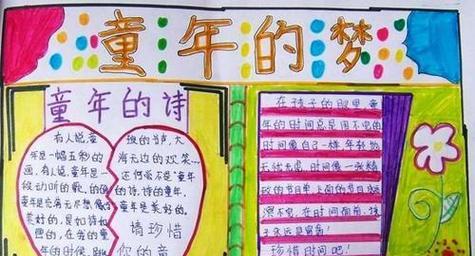 童年的梦
童年的诗
有人说,童
年是一幅五彩的
画,有人说,童年是一
段动听的歌,的确
童年是充满无尽想像的
美好的,是如诗如
画的,在我的童
年的时候,跳
的节声,大
海无边的欢笑…
不是童年
的诗,诗的童年,
童年是美好的。
请珍惜
你的童
在孩子的眼里,童
年的时间总是用不完的
时间像自己一样年轻
无忧无虑,时间像一张精
致的节目单,上面的节目永远
演不完,在时间面前,孩
子永远是富翁!
珍惜时间吧!